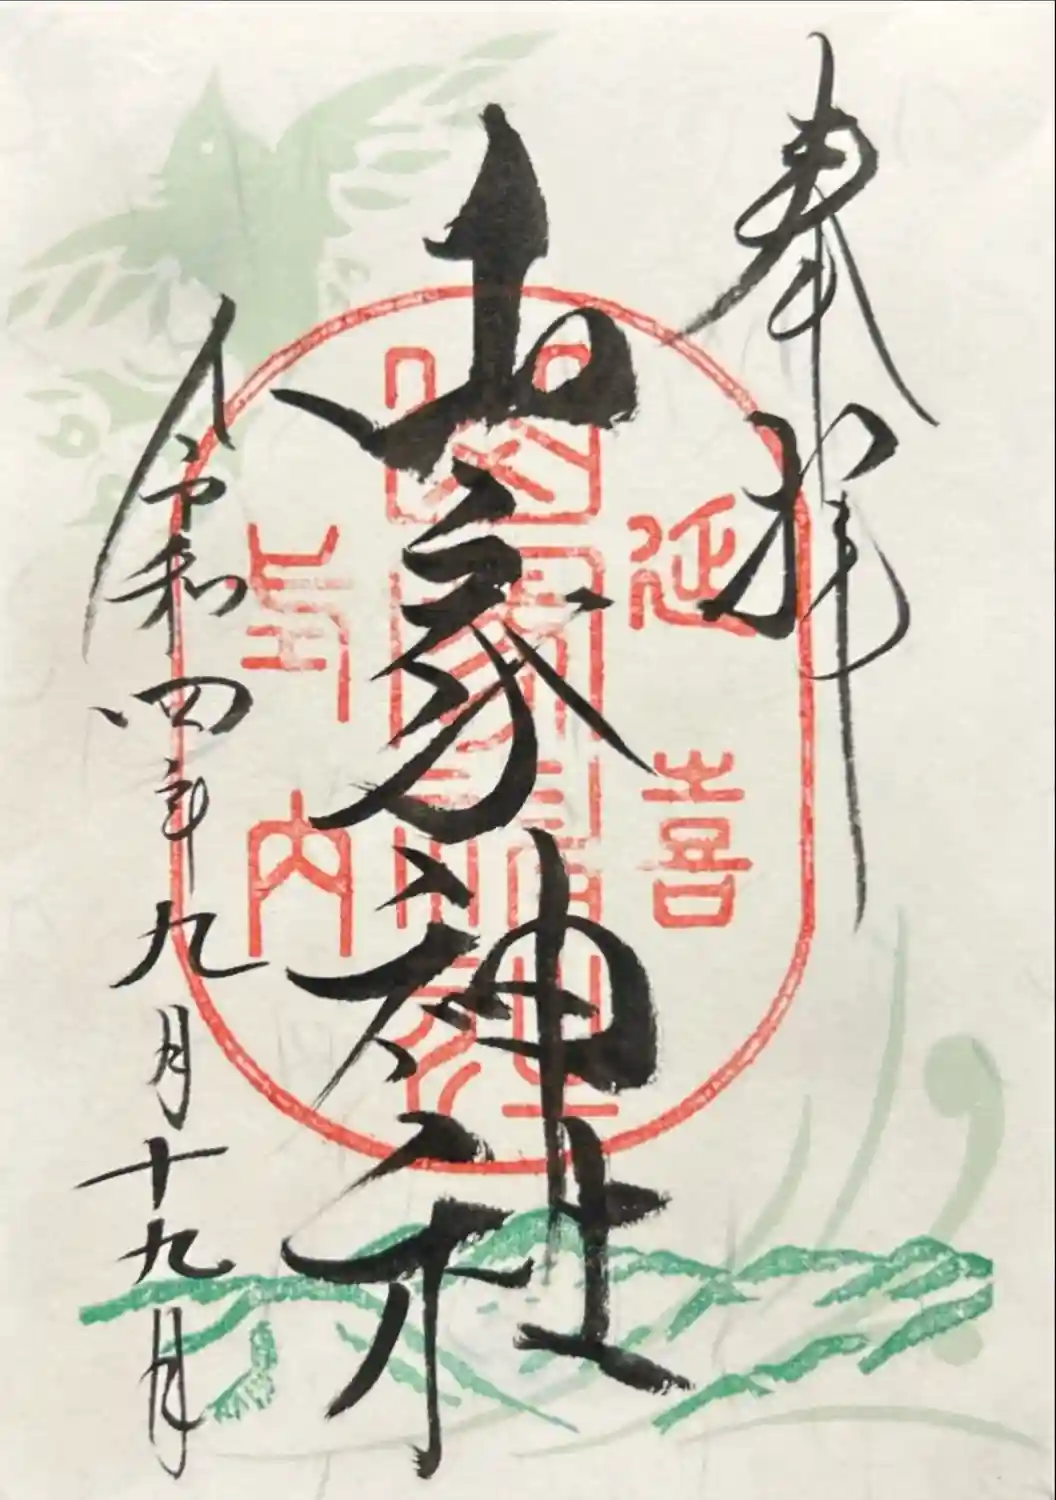 奉拝
延喜
山家神社
式内
令和四年九月十九日